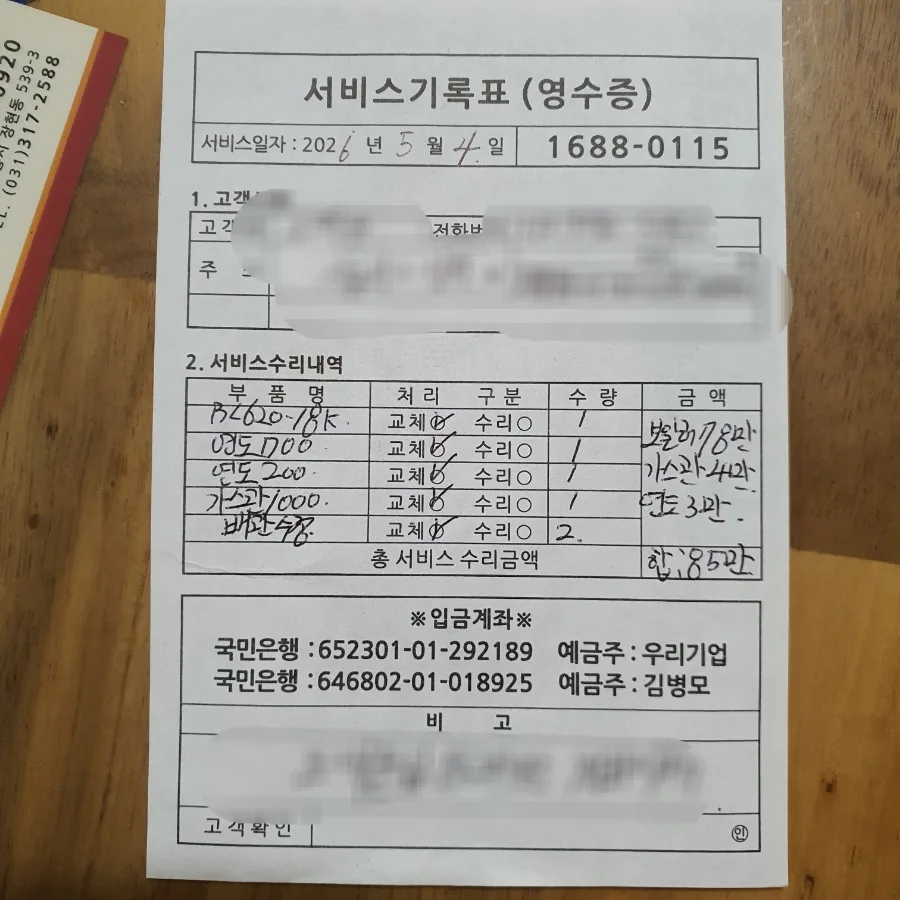 0920
장현동 539-3
(031)317-2588
서비스기록표 (영수증)
서비스일자 : 2026 년 5 월 4. 일
1688-0115
1. 고객
고객
전화번
주
2. 서비스수리내역
부 품 명 처리 구분 수 량 금 액
교체 수리○ 1 보일러 78만
연도 교체 수리○ 1
연도 200. 교체 수리○ 1 가스관 4만
가스관 1000. 교체 수리○ 1 연도 3만.
배관수정. 교체 수리○ 2.
총 서비스 수리금액 합:85만
※입금계좌※
국민은행 : 652301-01-292189 예금주 : 우리기업
국민은행 : 646802-01-018925 예금주 : 김병모
비 고
고객확인
인